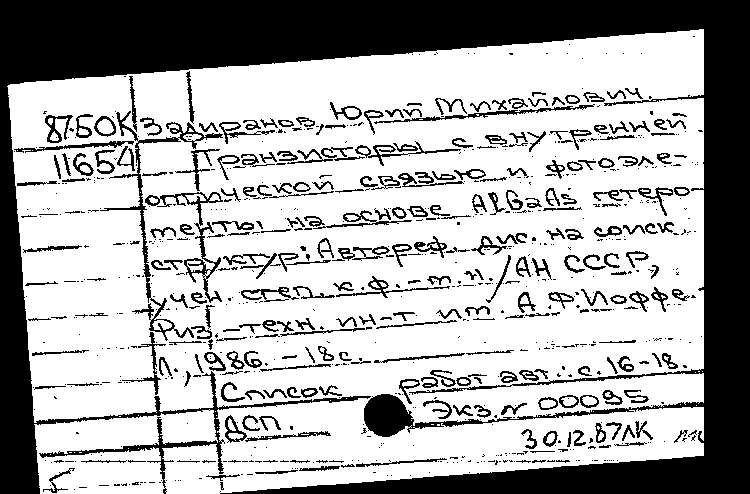 87-50К Задиранов, Юрий Михайлович.
11654 Транзисторы с внутренней
оптической связью и фотоэле-
менты на основе AlGaAs гетеро-
структур: Автореф. дис. на соиск.
учен. степ. к.ф.-м.н. / АН СССР,
Физ.-техн. ин-т им. А.Ф. Иоффе. -
Л., 1986. - 18 с.
Список работ авт.: с. 16-18.
ДСП. Экз. № 00095
30.12.87ЛК